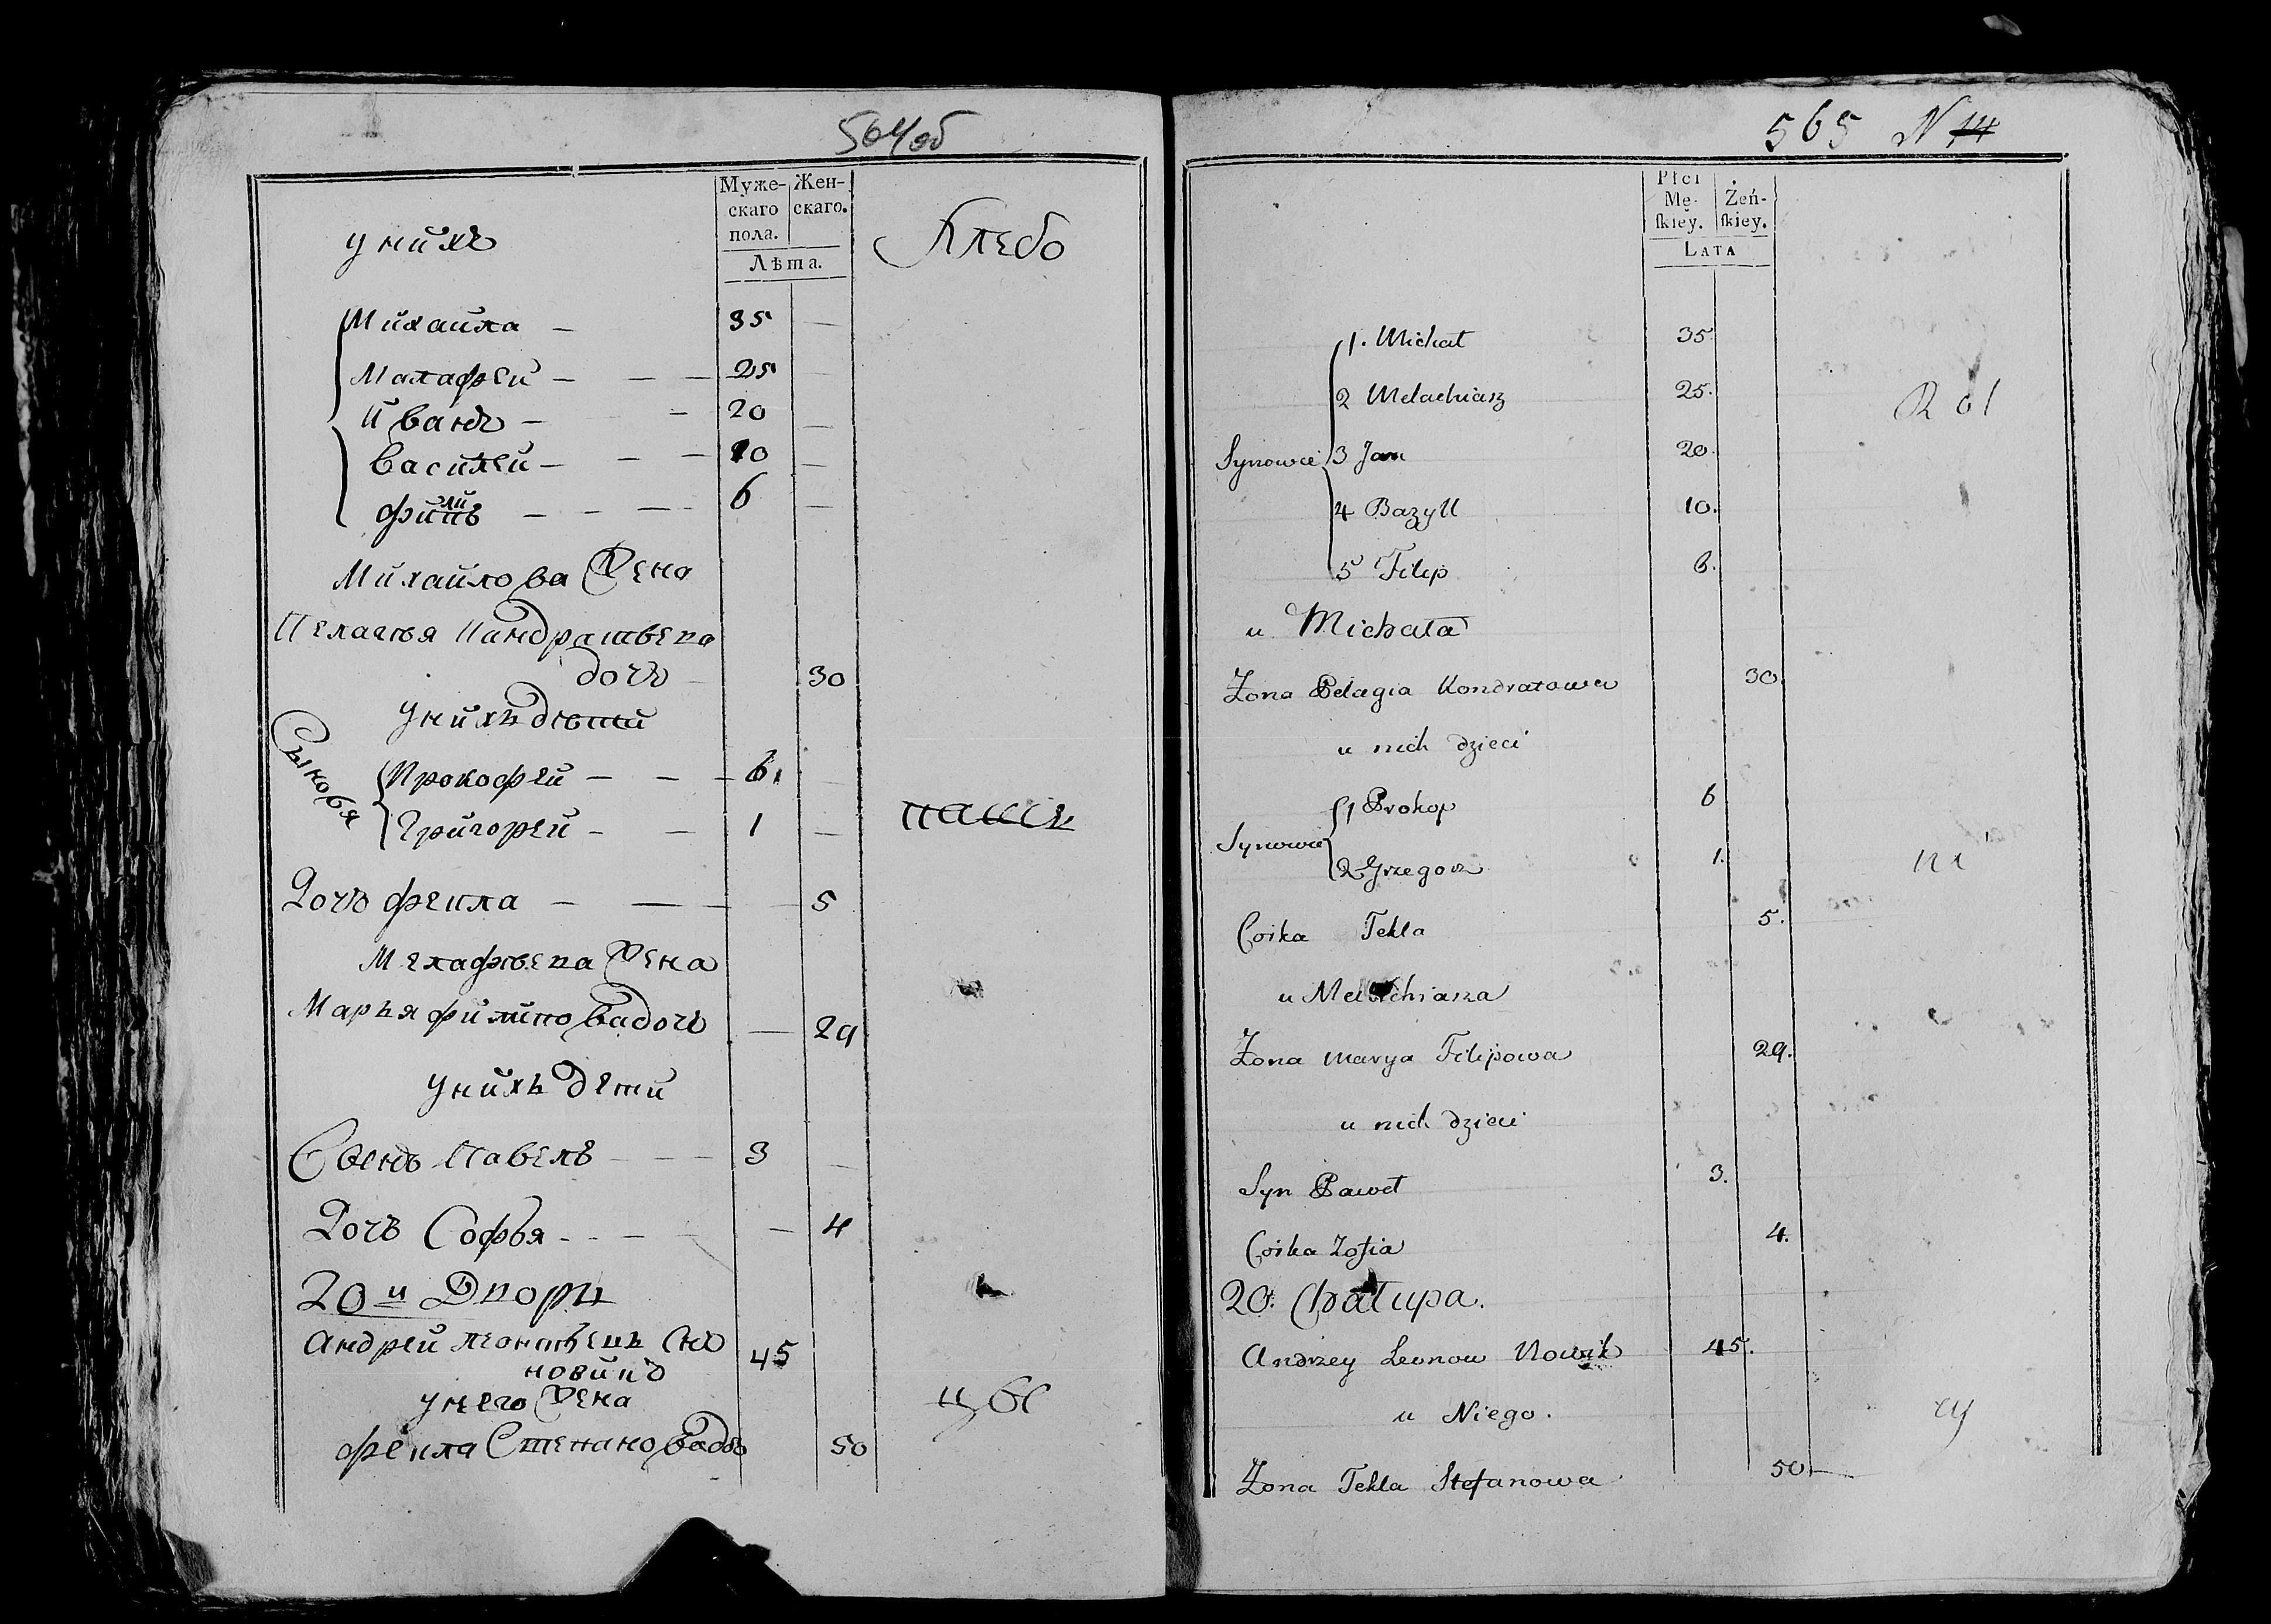 564об
Муже- Жен-
скаго скаго.
пола.
Лѣта.
унихъ
Хлебо
Михаила — 35 —
Малафеи — — — 25 —
Иванъ — — 20 —
Василеи — — — 10 —
Филипъ — — — 6 —
Михаилова Жена
Пелагѣя Кандратьева
дочь 30
Унихъ дѣти
Сыновья
Прокофеи — — — 6 —
Григореи — — 1 —
пашe
Дочь Фекла — — — 5
Мелафѣева Жена
Марья Филипова дочь — 29
Унихъ дети
Сынъ Павелъ — — — 3 —
Дочь Софья — — — 4
20й Дворъ
Андреи Леонтьевъ Снъ 45
новикъ
унего Жена
Фекла Степанова дочь 50
565 N 14
Płci
Mę- Żeń-
skiey. skiey.
LATA
1. Michał 35.
2 Melachiasz 25.
Rol
Synowie 3 Jan 20.
4 Bazyll 10.
5 Filip 6.
u Michała
Żona Pelagia Kondratowa 30.
u nich dzieci
1 Prokop 6
Synowie
2 Grzegorz 1.
Córka Tekla 5.
u Melachiasza
Żona Marya Filipowa 29.
u nich dzieci
Syn Paweł 3.
Córka Zofia 4.
20. Chałupa.
Andrzey Leonow Nowik 45.
u Niego.
Żona Tekla Stefanowa 50